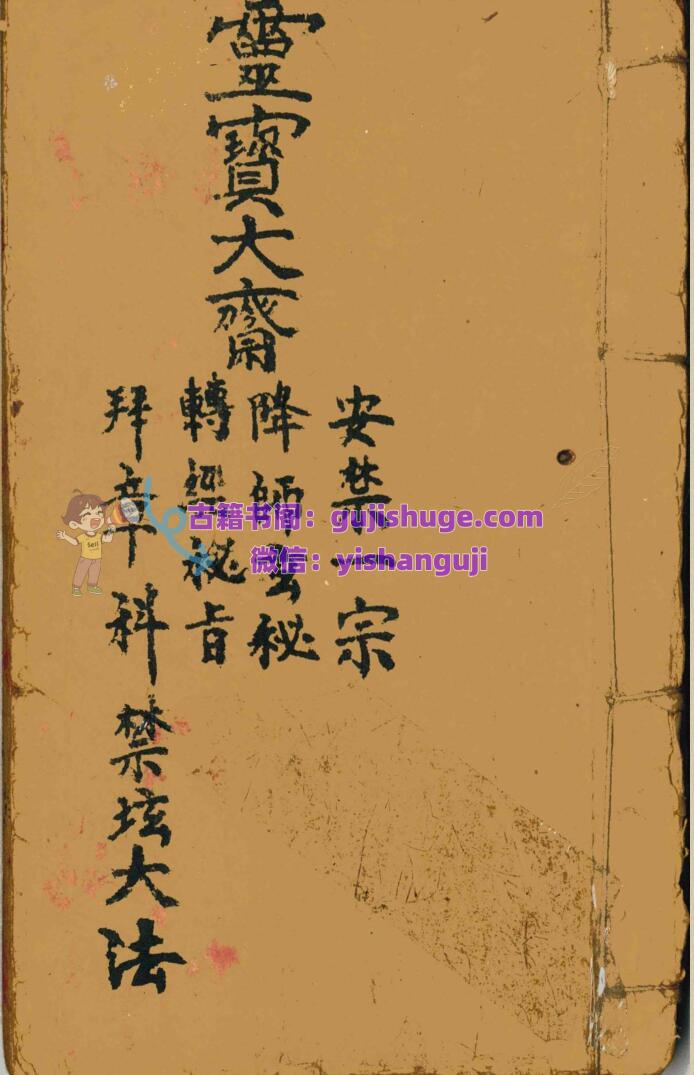 靈寶大齋
安禁一宗
降師玄秘
轉經秘旨
拜章科禁坛大法
古籍书阁：gujishuge.com
微信：yishanguji
Sell